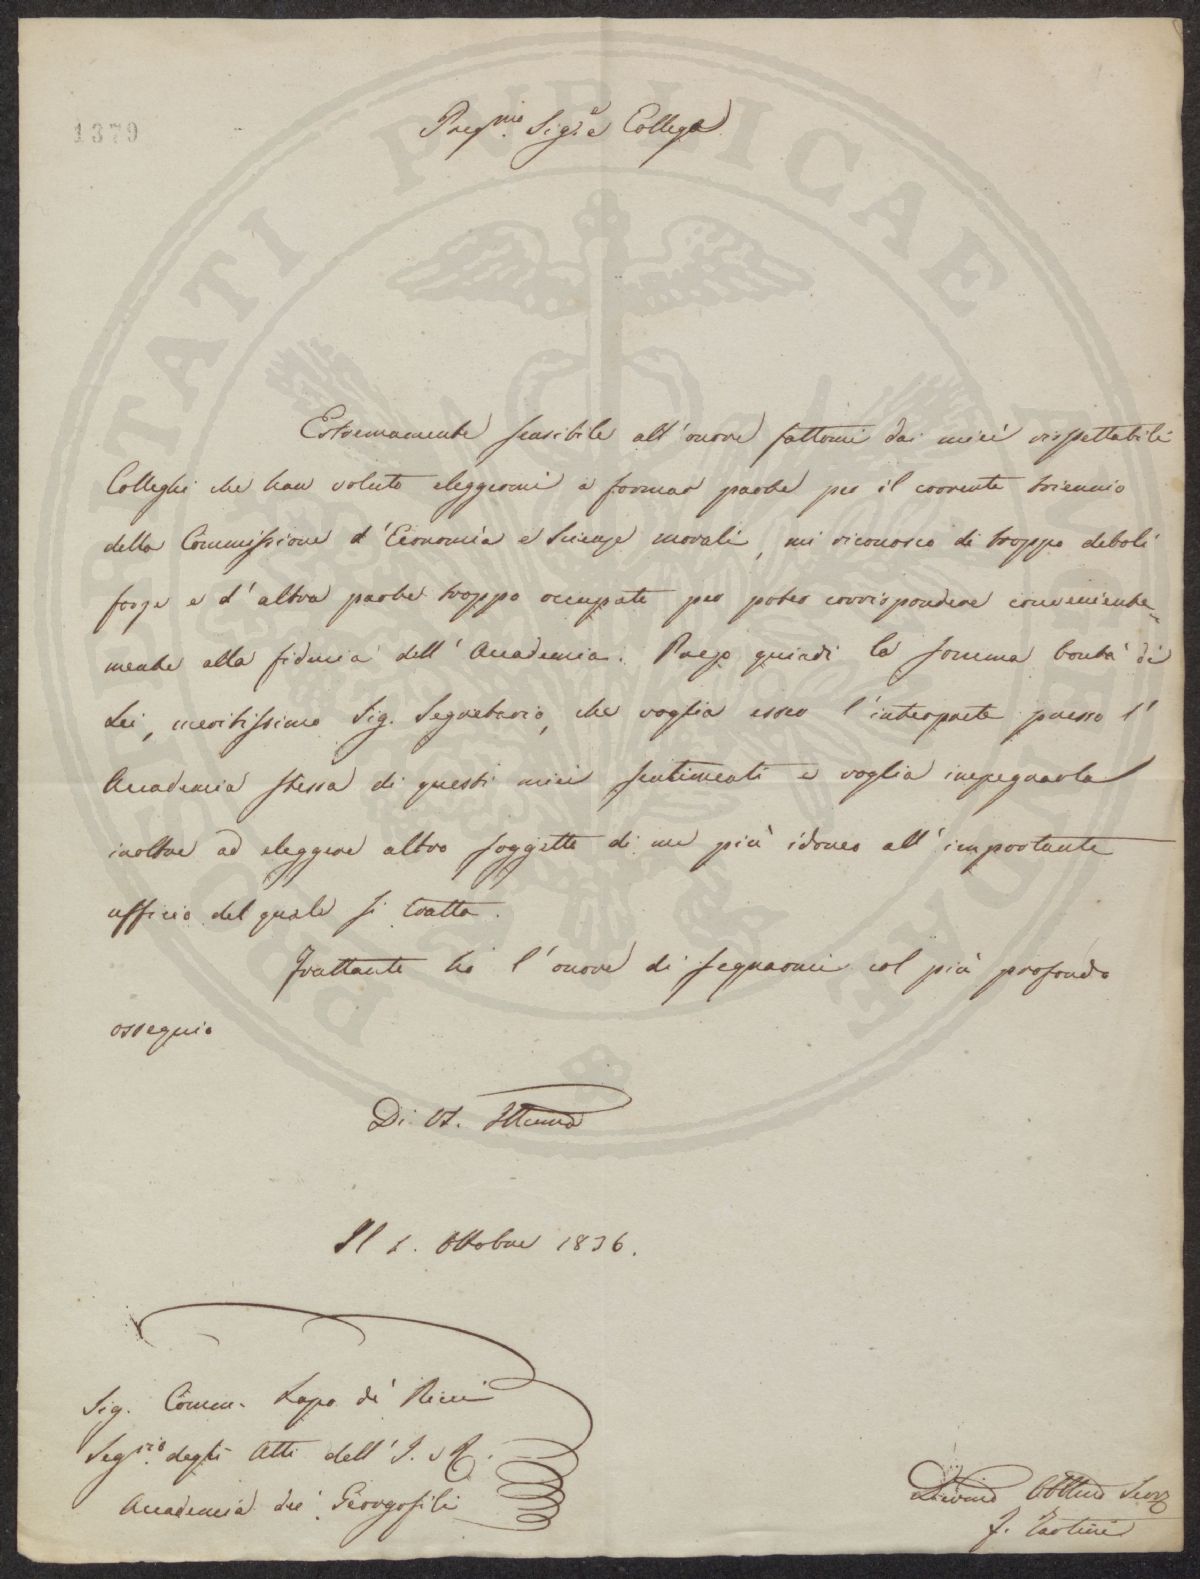 1379
Preg.mo Sig.e e Collega
Estremamente sensibile all'onore fattomi dai miei rispettabili
Colleghi che han voluto eleggermi a formar parte per il corrente triennio
della Commissione d'Economia e Scienze morali, mi riconosco di troppo deboli
forze e d'altra parte troppo occupate per poter corrispondere conveniente-
mente alla fiducia dell'Accademia. Prego quindi la somma bontà di
Lei, meritissimo Sig. Segretario, che voglia esser l'interprete presso l'
Accademia stessa di questi miei sentimenti e voglia impegnarla
inoltre ad eleggere altro soggetto di me più idoneo all'importante
ufficio del quale si tratta.
Frattanto ho l'onore di segnarmi col più profondo
ossequio
Di VS. Illuma
Il 1. Ottobre 1836.
Sig. Comm. Lapo de' Ricci
Seg.rio degli Atti dell'I. e R.
Accademia dei Georgofili
Devmo Obbllmo Serv
F. Tartini
PROSPERITATI PUBLICAE AUGENDAE